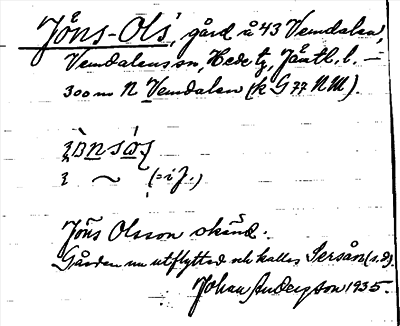 Jöns-Ols', gård å 43 Vemdalen,
Vemdalens sn, Hede tg, Jämtl. l. —
300 m N Vemdalen (k G 77 NM).
(= i J.)
Jöns Olsson skänd.
Gården nu utflyttad och kallas Sersån (s.d).
Johan Anderzon 1935.